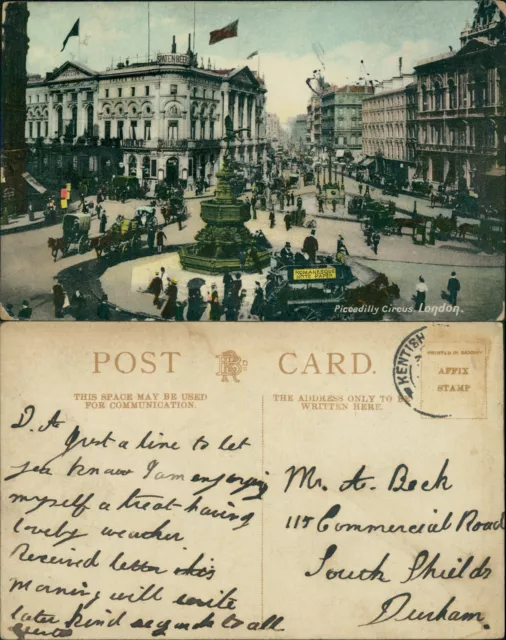 SPATEN BEER
ROMANESQUE
Piccadilly Circus, London.
POST CARD.
THIS SPACE MAY BE USED
FOR COMMUNICATION.
THE ADDRESS ONLY TO BE
WRITTEN HERE.
KENTISH
PRINTED IN SAXONY
AFFIX
STAMP
D. A
Just a line to let
you know I am enjoying
myself a treat having
lovely weather
Received letter this
morning will write
later kind regards to all
Mr. A. Beck
115 Commercial Road
South Shields
Durham.